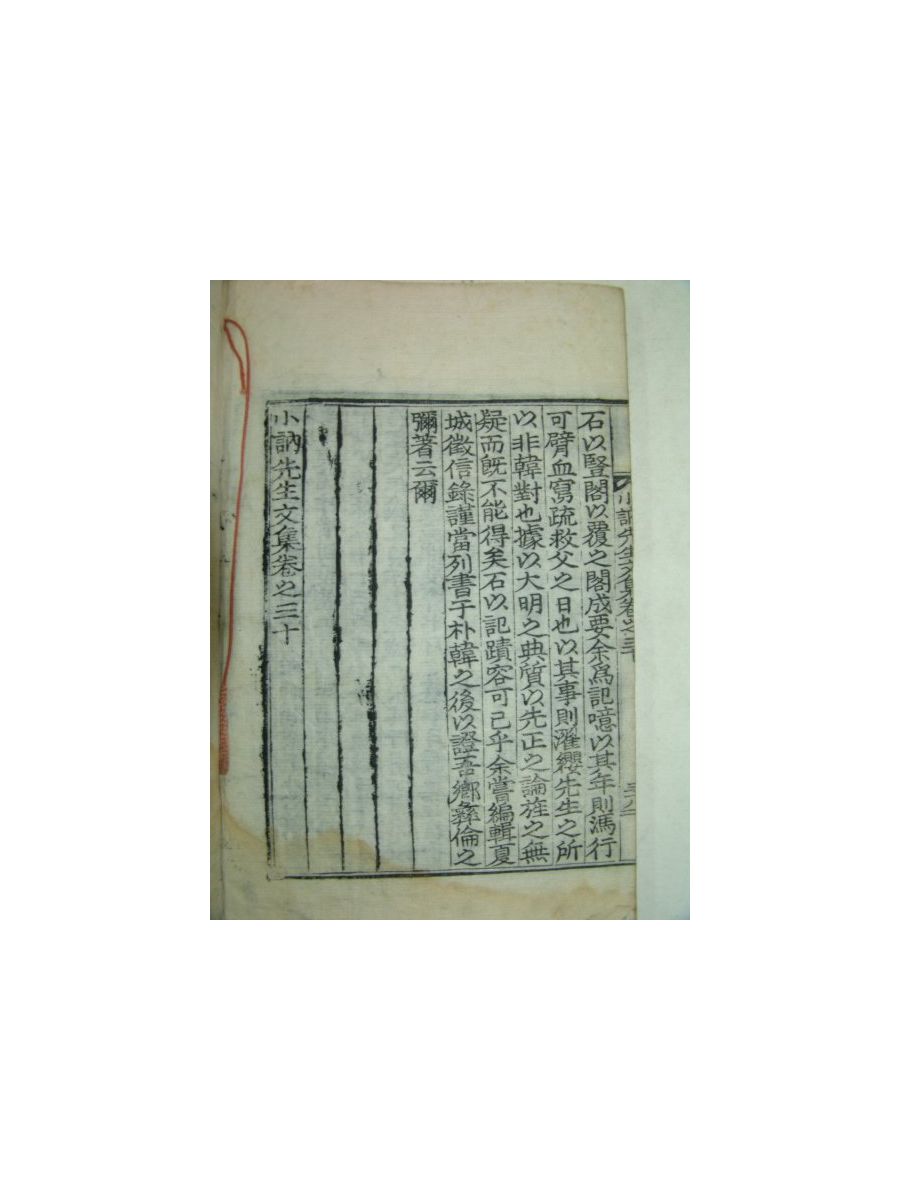 小訥先生文集卷之三十
石以豎閣以覆之閣成要余爲記噫以其年則馮行
可臂血寫疏救父之日也以其事則濯纓先生之所
以非韓對也據以大明之典質以先正之論旌之無
疑而旣不能得矣石以記蹟容可已乎余嘗編輯夏
城徵信錄謹當列書于朴韓之後以證吾鄉彝倫之
彌著云爾
小訥先生文集卷之三十